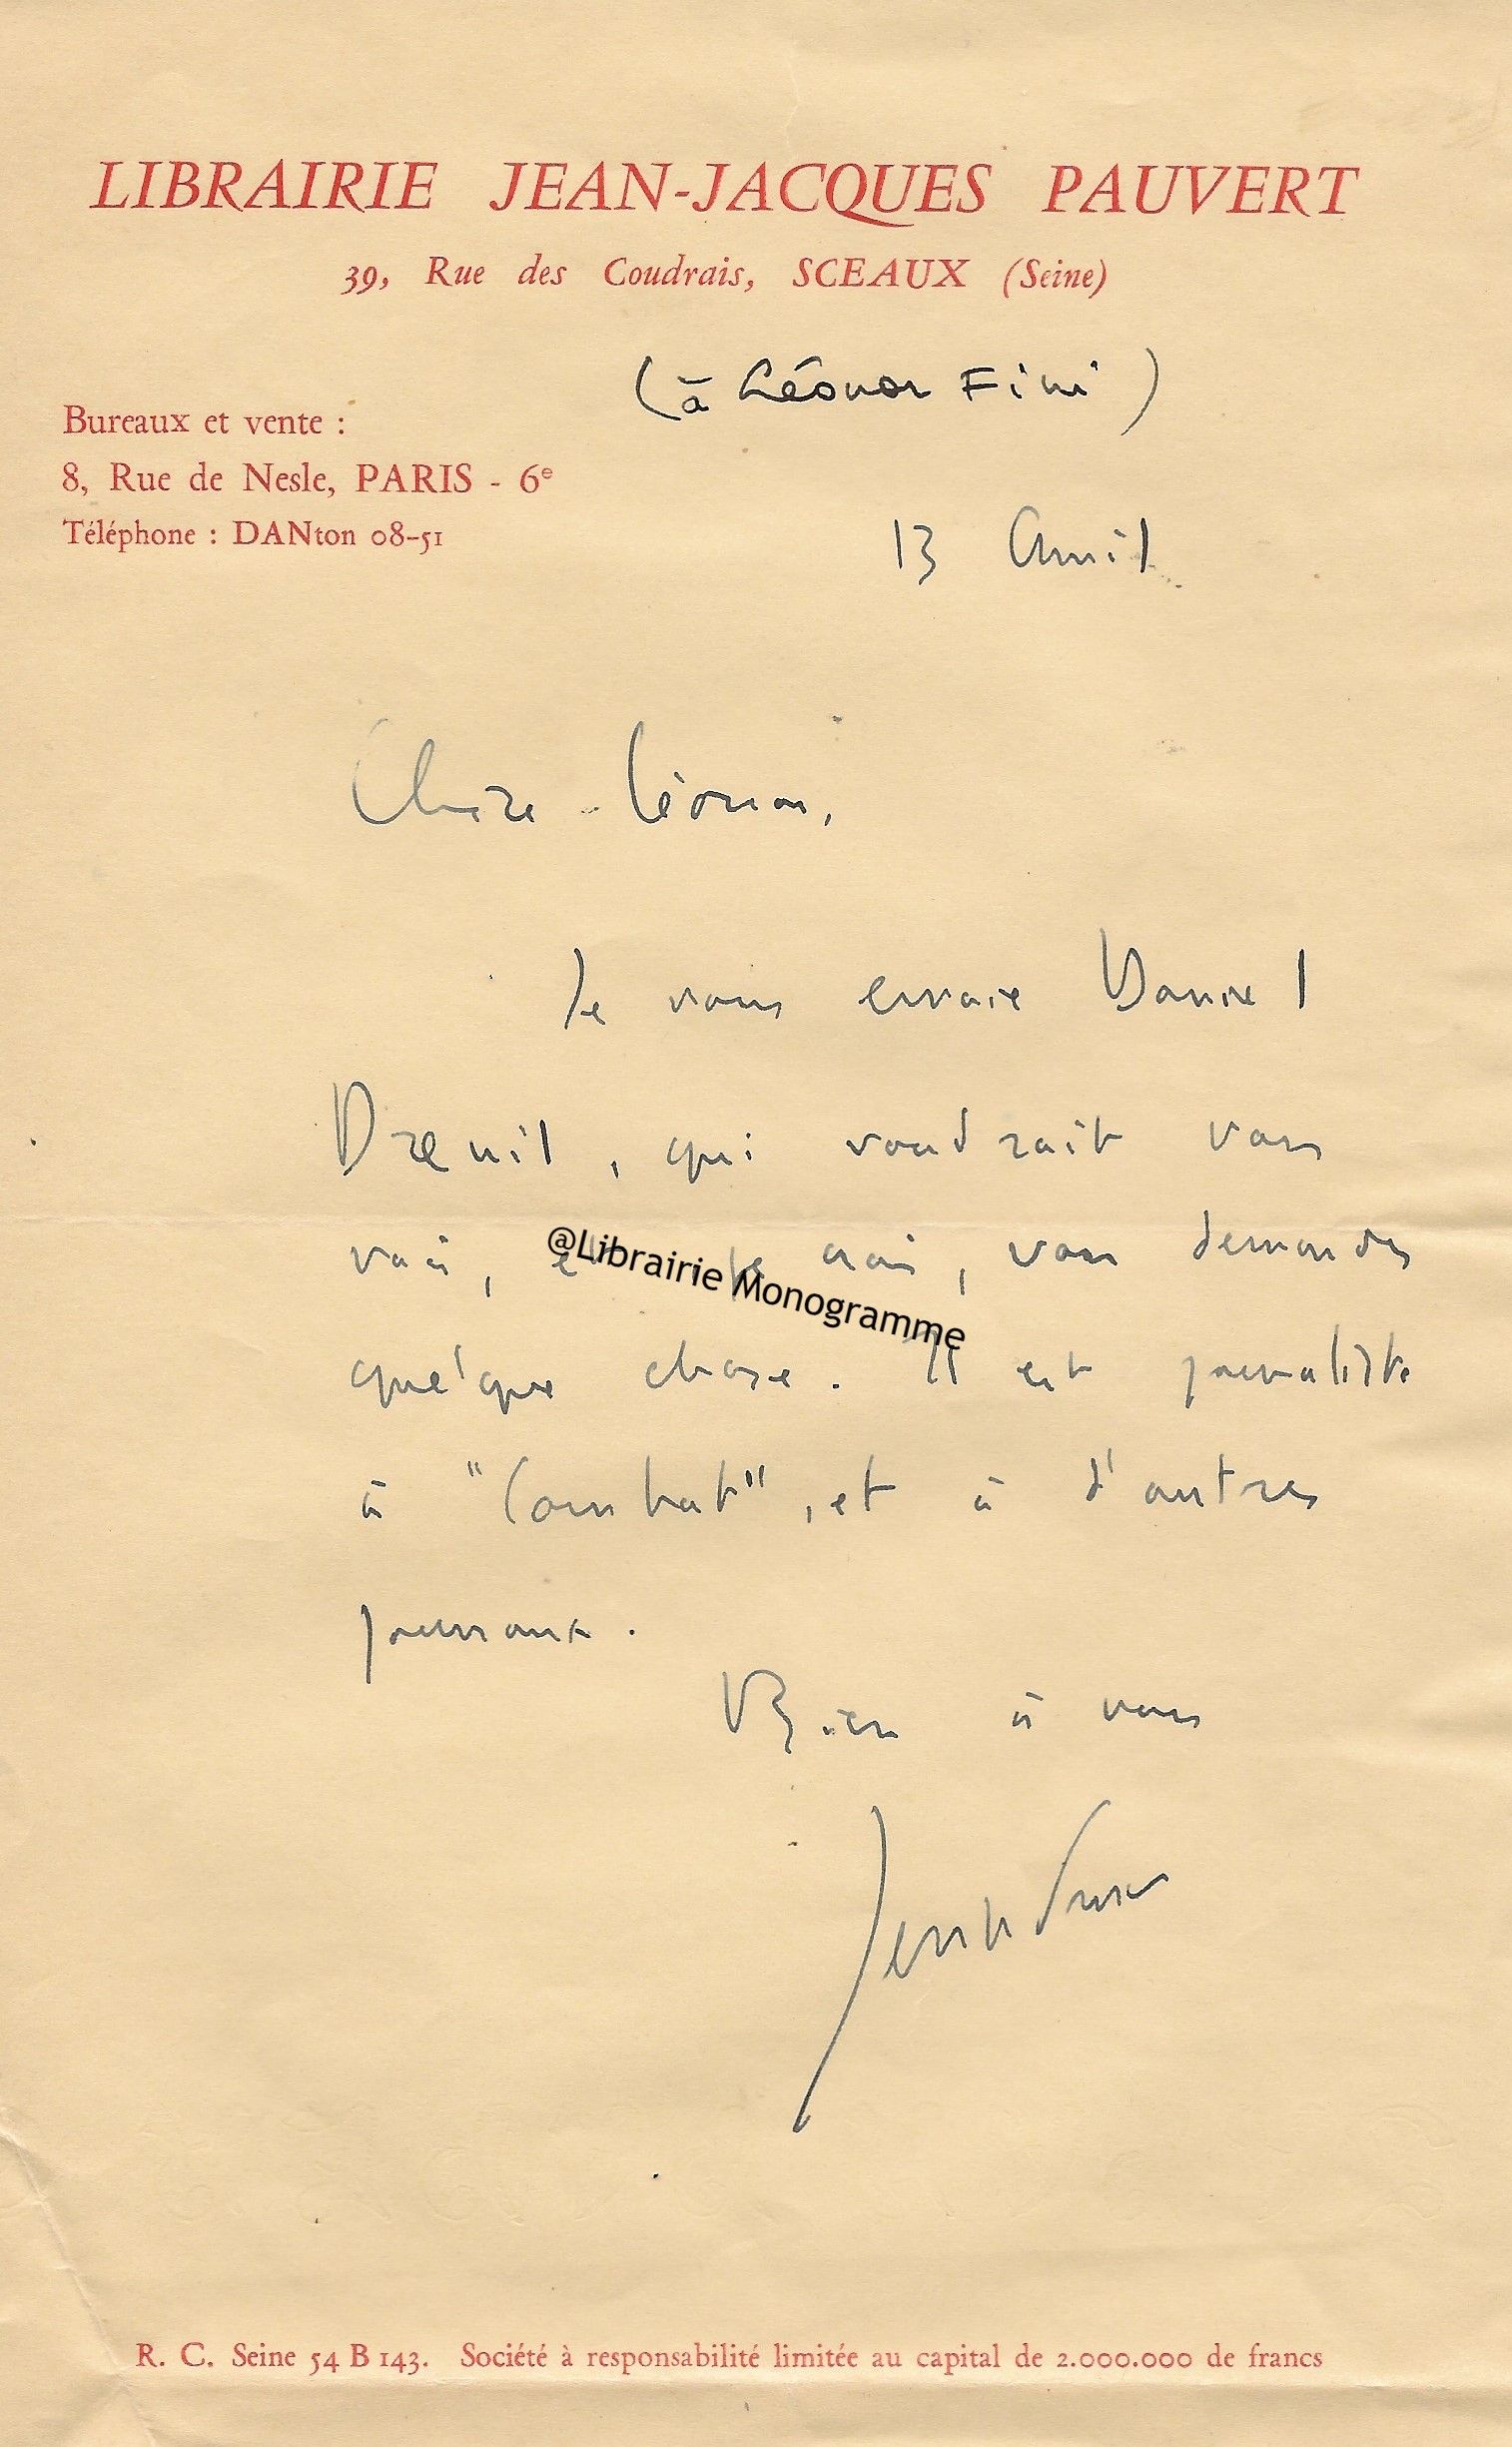 LIBRAIRIE JEAN-JACQUES PAUVERT
39, Rue des Coudrais, SCEAUX (Seine)
(à Léonor Fini)
Bureaux et vente :
8, Rue de Nesle, PARIS - 6e
Téléphone : DANton 08-51
13 Avril
Chère Léonor,
Je vous envoie Daniel
Dreuil, qui voudrait vous
voir, et je crois, vous demander
quelque chose. Il est journaliste
à "Combat", et à d'autres
journaux.
Bien à vous
@Librairie Monogramme
R. C. Seine 54 B 143. Société à responsabilité limitée au capital de 2.000.000 de francs